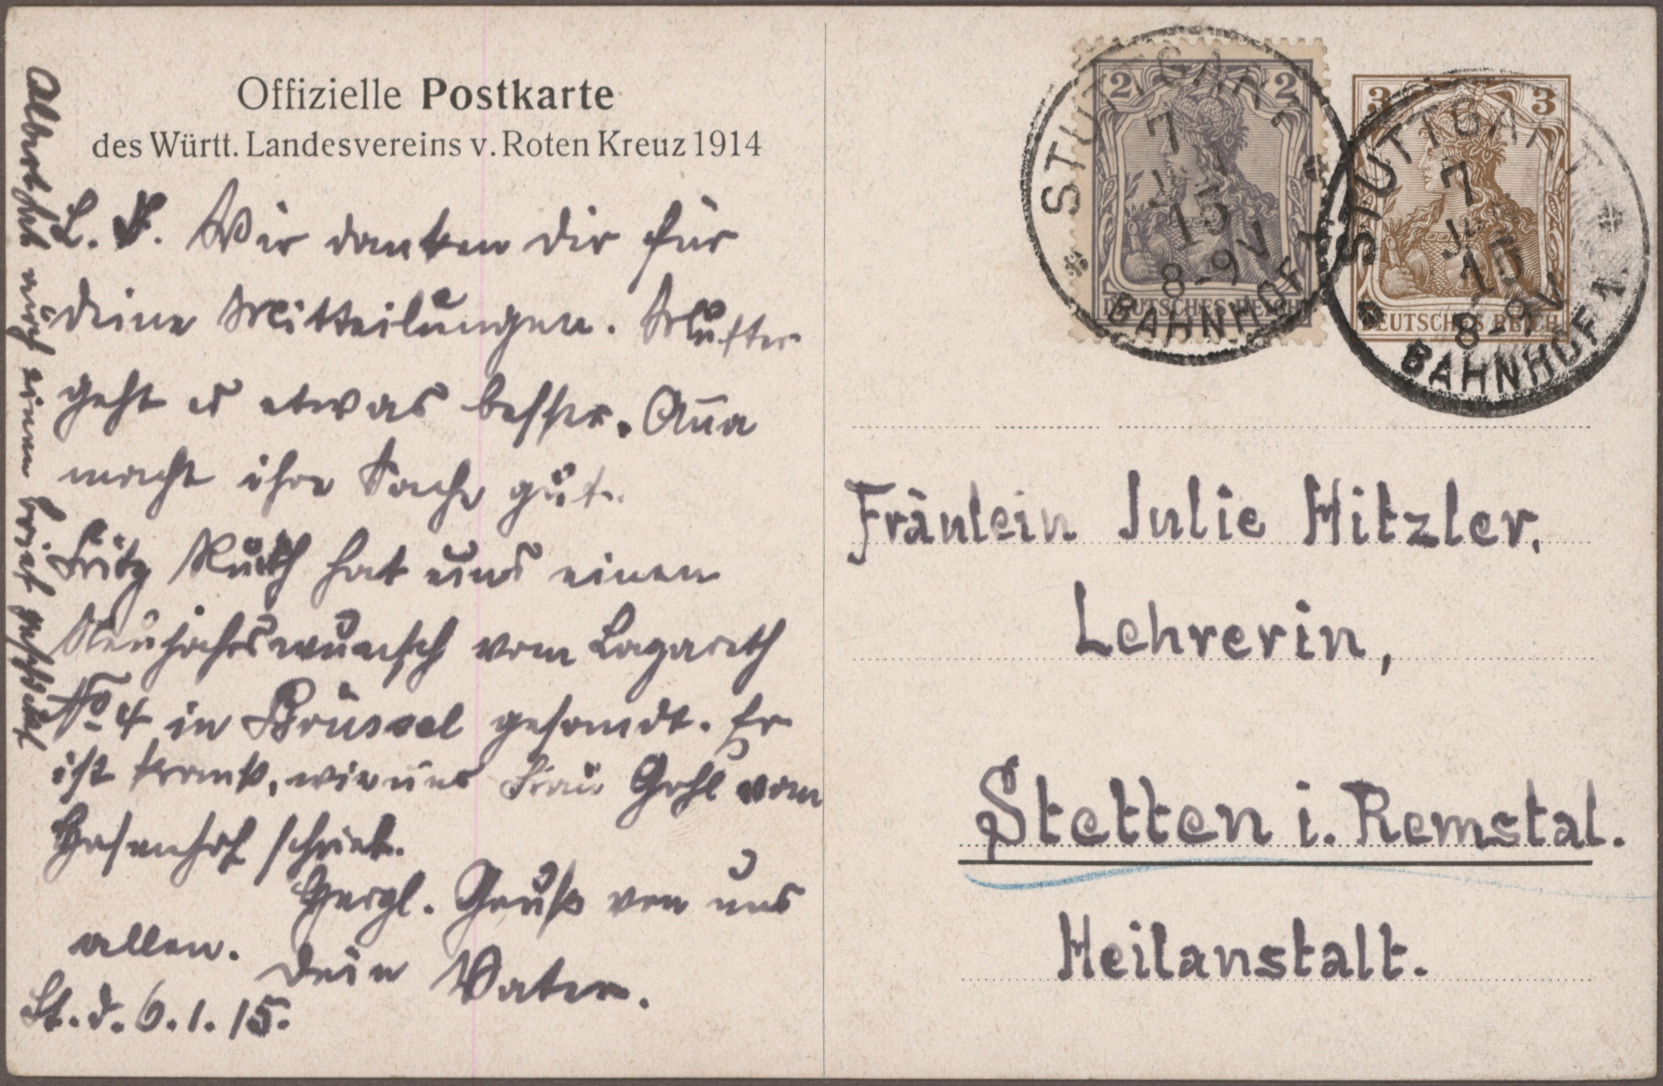 Offizielle Postkarte
des Württ. Landesvereins v. Roten Kreuz 1914
L. J. Wir danken dir für
deine Mitteilungen. Mutter
geht es etwas besser. Ana
macht ihre Sache gut.
Fritz Ruth hat uns einen
Neujahrswunsch vom Lazareth
No 4 in Brüssel gesandt. Er
ist krank, wie uns Frau Gohl vom
Hasenhof schrieb.
Herzl. Gruß von uns
allen. Dein Vater.
St. d. 6.1.15.
Albert hat auch einen Brief geschickt
2 2
DEUTSCHES REICH
3 3
DEUTSCHES REICH
STUTTGART
7
JAN
15
8-9V
BAHNHOF 1
STUTTGART
7
JAN
15
8-9V
BAHNHOF 1
Fräulein Julie Hitzler,
Lehrerin,
Stetten i. Remstal.
Heilanstalt.